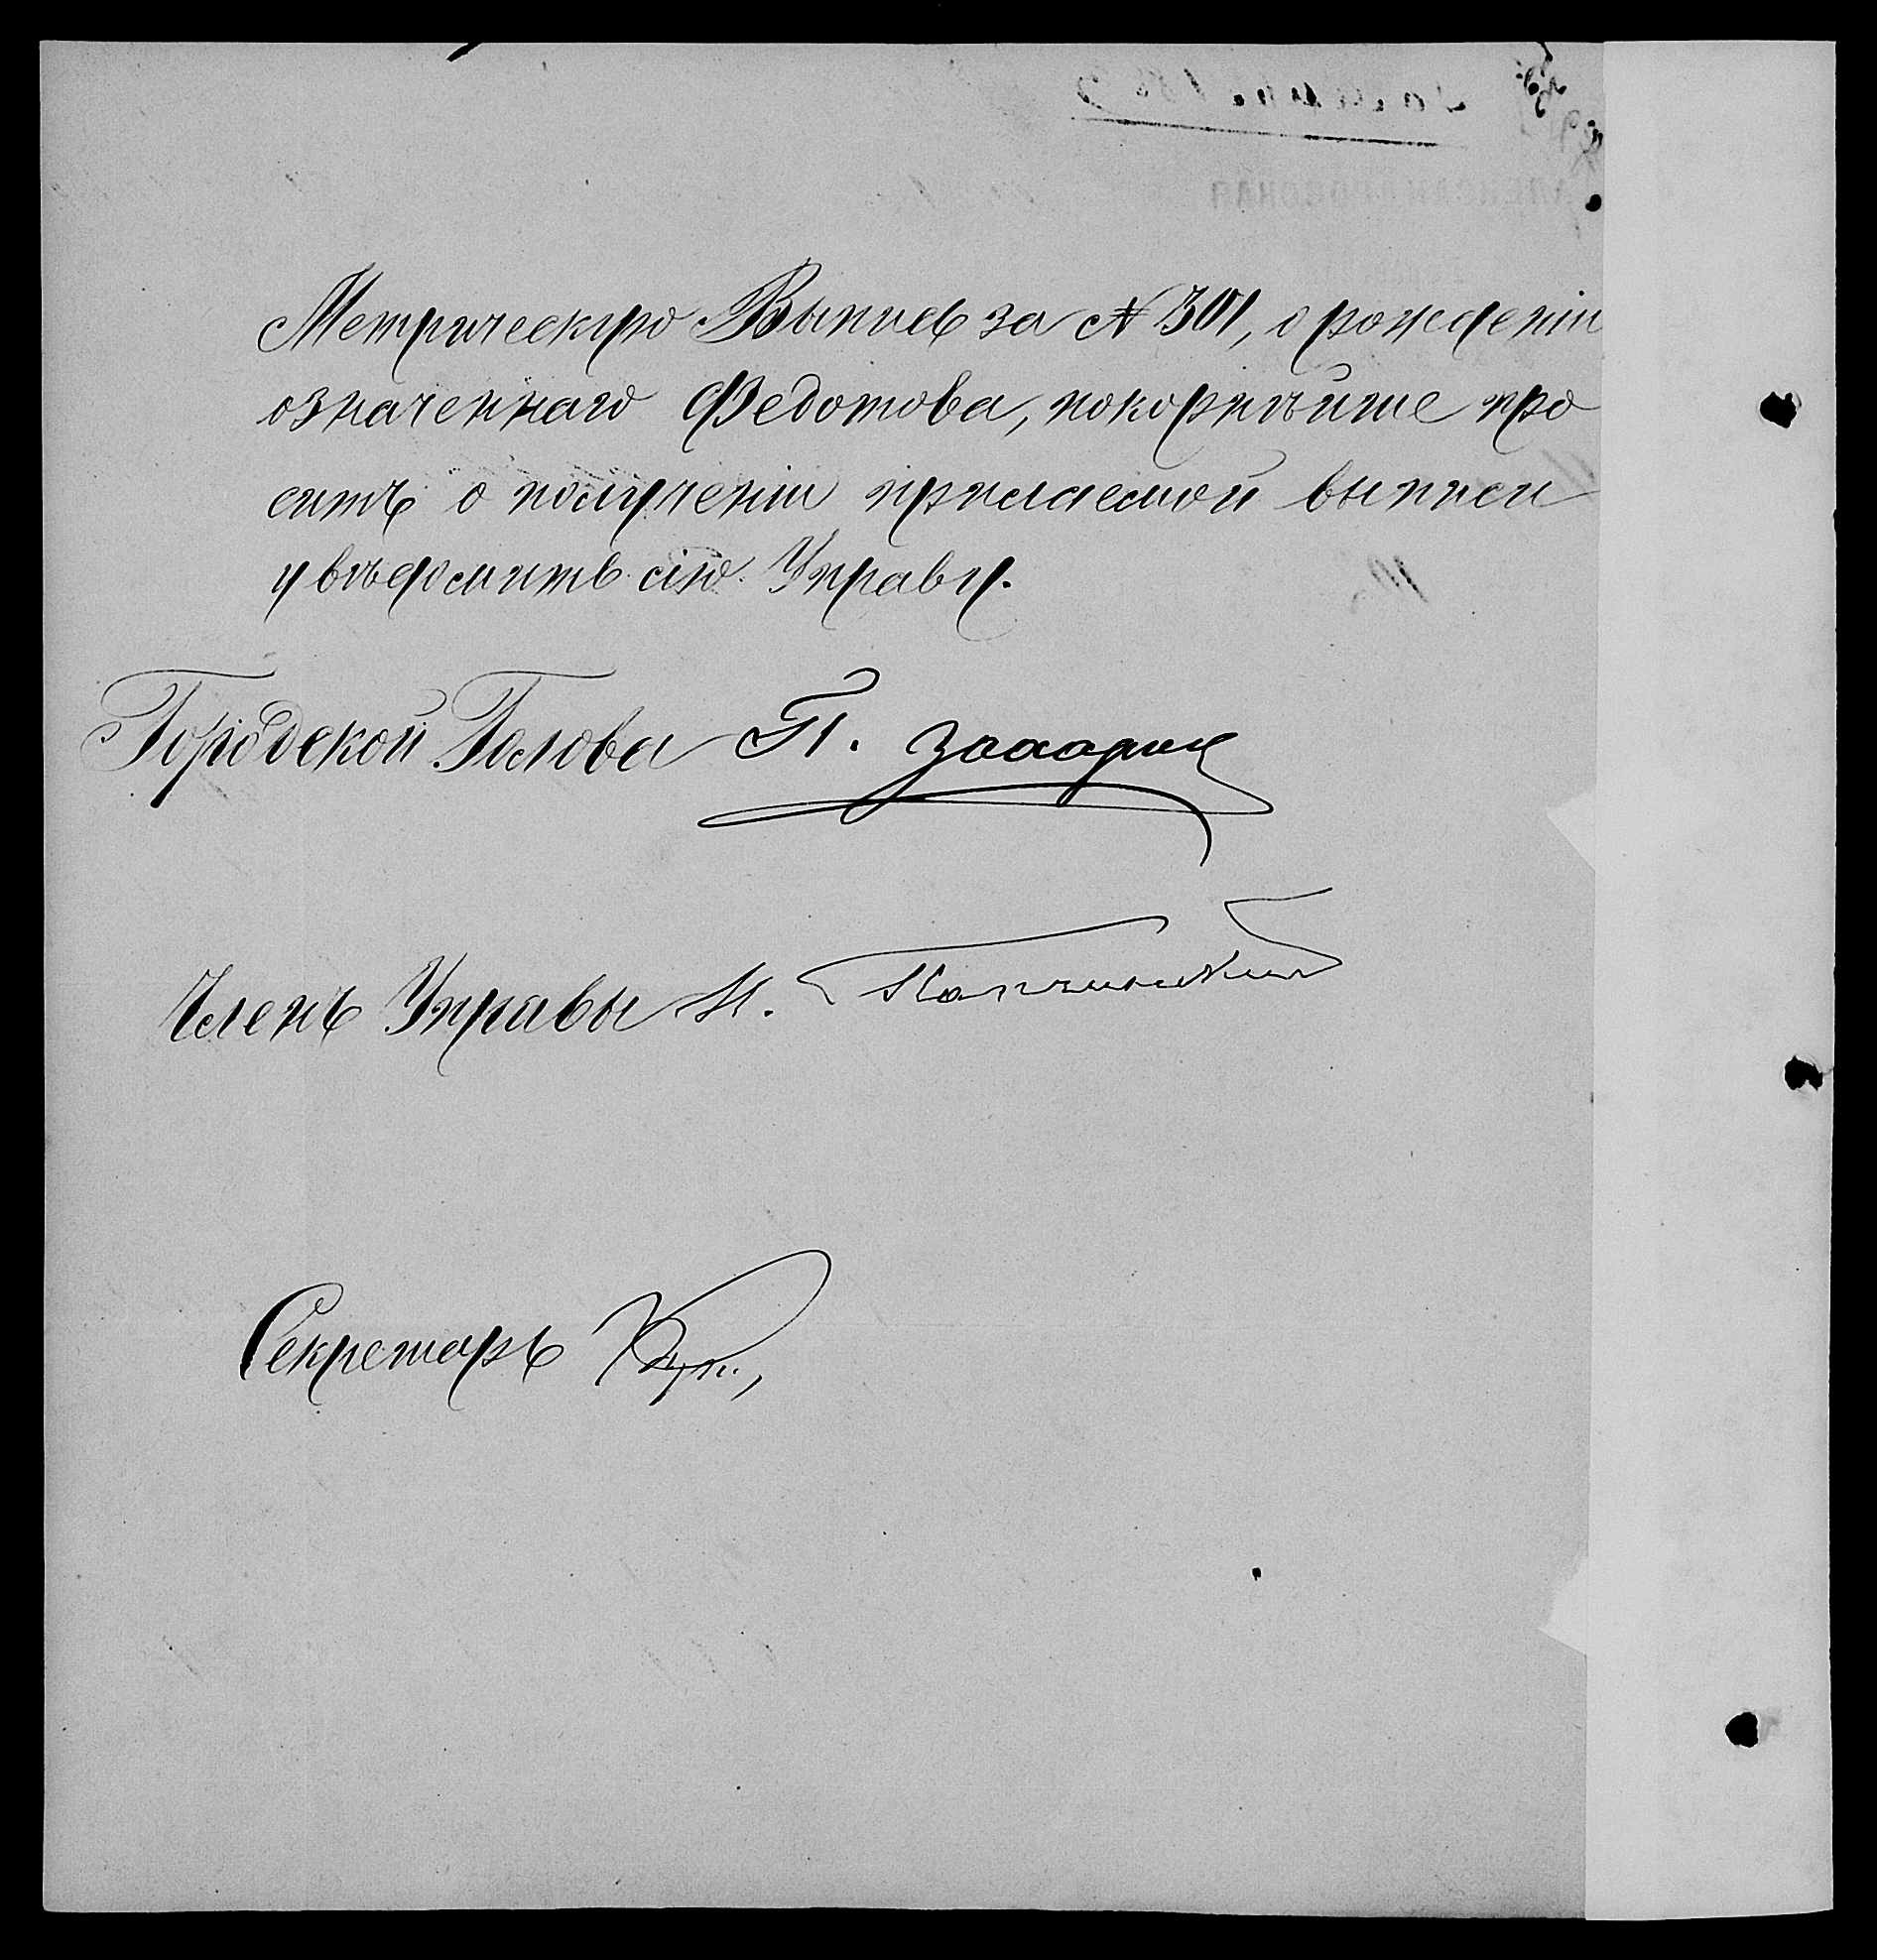 Метрическую Выпись за № 301, о рожденіи
означеннаго Федотова, покорнѣйше про
ситъ о полученіи прилагаемой выписи
увѣдомить сію Управу.
Городской Голова П. Захарин
Членъ Управы И.
Секретарь